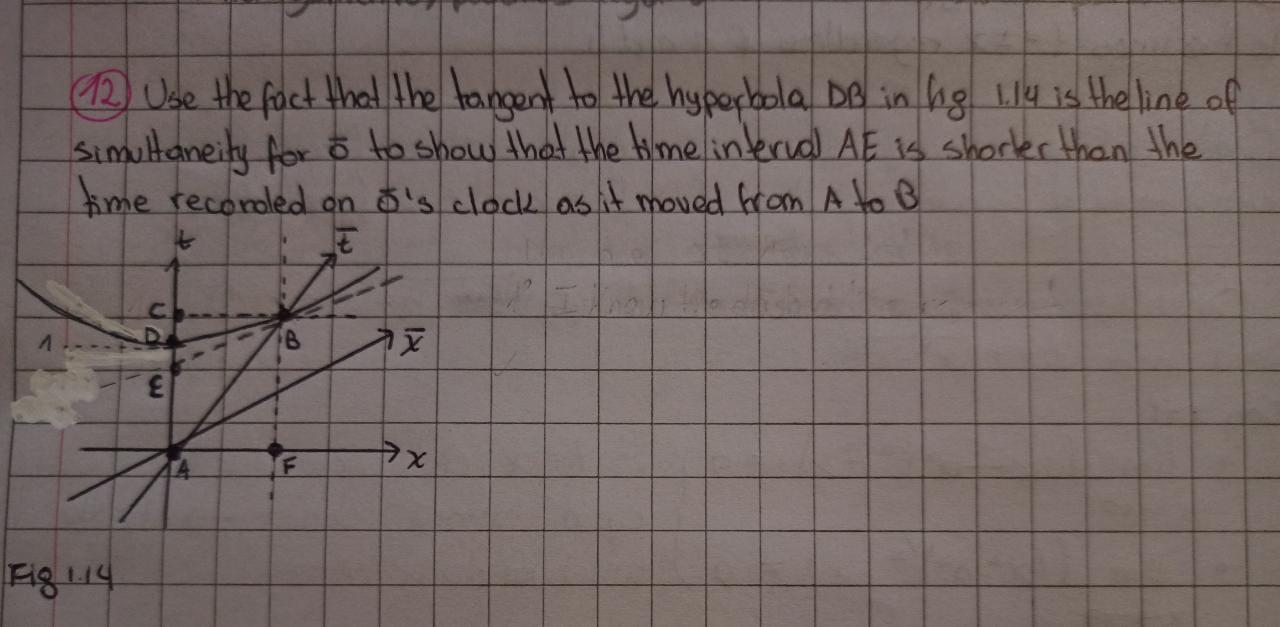 12 Use the fact that the tangent to the hyperbola DB in fig 1.14 is the line of
simultaneity for ō to show that the time interval AE is shorter than the
time recorded on ō's clock as it moved from A to B
t
t̄
C
D
1
B
x̄
E
A
F
x
Fig 1.14